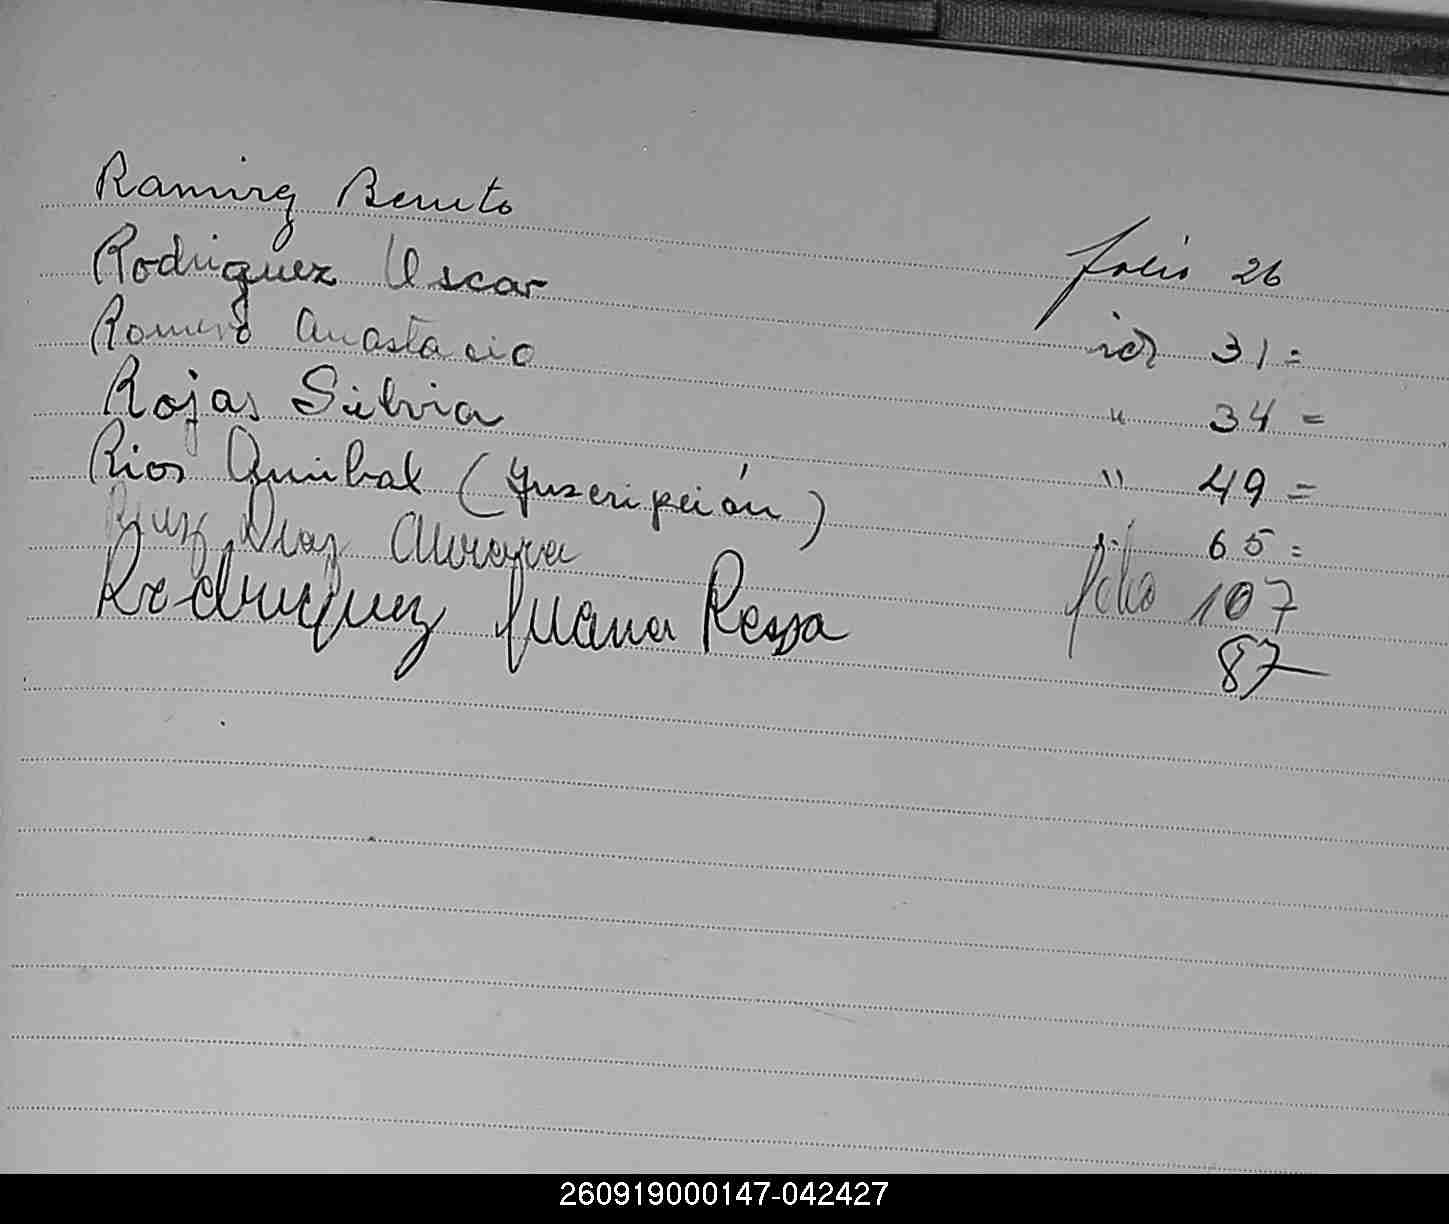 Ramirez Benito folio 26
Rodriguez Oscar id 31=
Romero Anastacio " 34=
Rojas Silvia " 49=
Rios Anibal (Inscripción) 65=
Ruiz Diaz Aurora folio 107
Rodriguez Juana Rossa 87
260919000147-042427